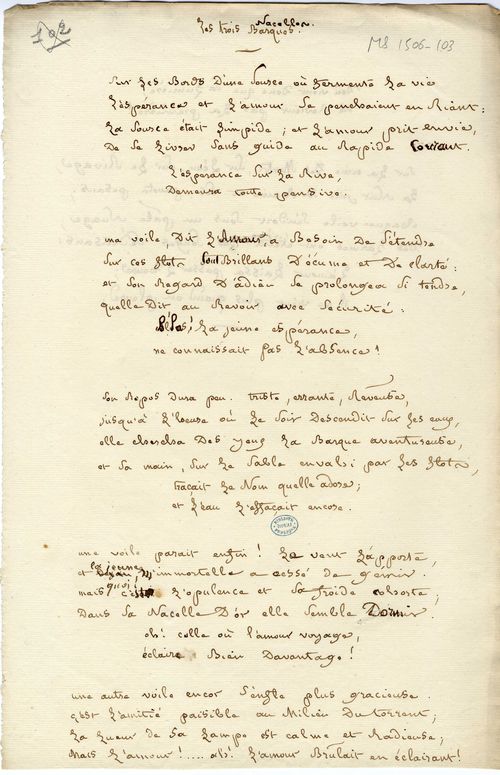 102
MS 1506-103
Nacelles.
Les trois Barques.
Sur les Bords d'une Source où fermente la vie
L'espérance et l'amour se penchaient en Riant :
La Source était limpide ; et l'amour prit envie,
De se livrer sans guide au Rapide Courant.
L'espérance sur la Rive,
Demeura toute pensive.
ma voile Dit l'Amour, a Besoin De s'étendre
Sur ces flots tout Brillants D'écume et De clarté :
et son Regard D'adieu se prolongea si tendre,
quelle Dit au Revoir avec Sécurité :
hélas ! la jeune espérance,
ne connaissait pas l'absence !
Son Repos Dura peu. triste, errante, Rêveuse,
jusqu'à l'heure où le soir Descendit sur les eaux,
elle chercha Des yeux la Barque aventureuse,
et sa main, sur le sable envahi par les flots,
traçait le Nom quelle adore ;
et l'eau l'effaçait encore.
une voile parait enfin ! le vent l'apporte,
et la jeune immortelle a cessé de gémir.
mais quoi ! l'opulence et sa froide cohorte ;
Dans sa Nacelle D'or elle semble Dormir.
oh ! celle où l'amour voyage,
éclaire Bien Davantage !
une autre voile encor s'enfle plus gracieuse.
c'est l'amitié paisible au Milieu Du torrent ;
la lueur de sa lampe est calme et Radieuse ;
Mais l'amour !.... ah ! l'amour Brûlait en éclairant !